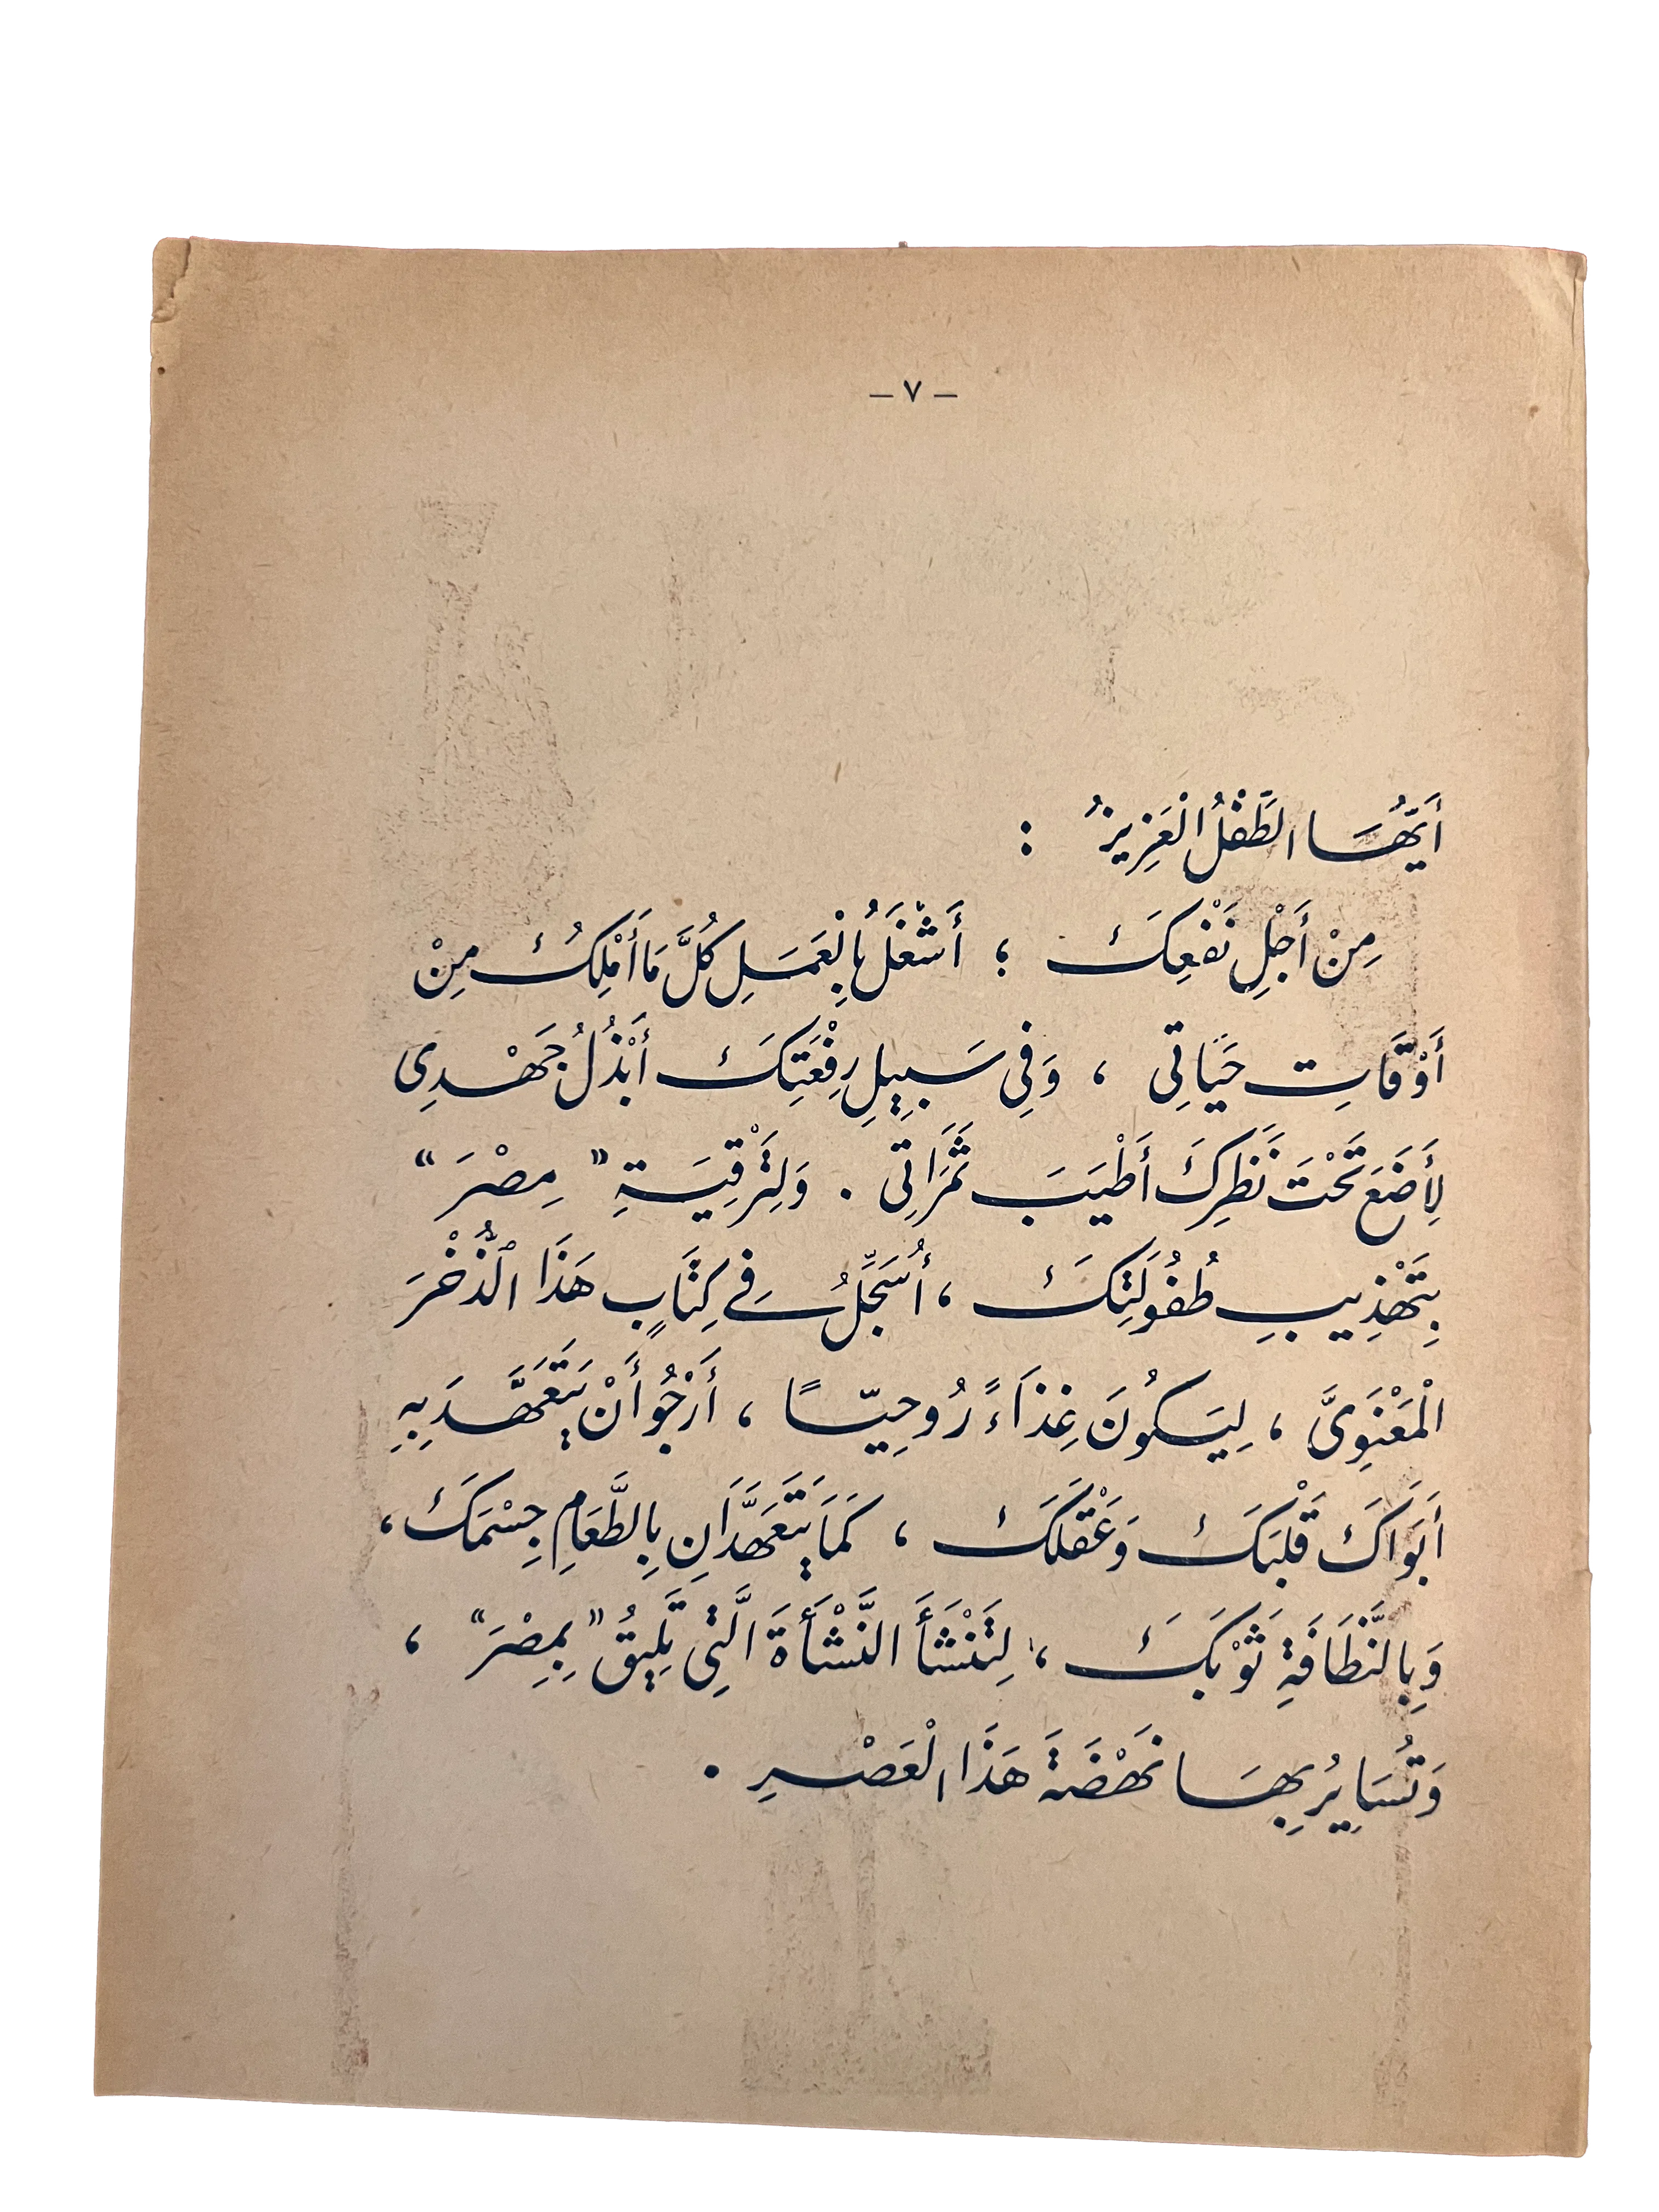 – ٧ –
أَيُّهَا الطِّفْلُ الْعَزِيزُ :
مِنْ أَجْلِ نَفْعِكَ ؛ أَشْغَلُ بِالْعَمَلِ كُلَّ مَا أَمْلِكُ مِنْ
أَوْقَاتِ حَيَاتِى ، وَفِى سَبِيلِ رِفْعَتِكَ أَبْذُلُ جَهْدِى
لِأَضَعَ تَحْتَ نَظَرِكَ أَطْيَبَ ثَمَرَاتِى . وَلِتَرْقِيَةِ " مِصْرَ "
بِتَهْذِيبِ طُفُولَتِكَ ، أُسَجِّلُ فِى كِتَابٍ هَذَا الذُّخْرَ
الْمَعْنَوِىَّ ، لِيَكُونَ غِذَاءً رُوحِيًّا ، أَرْجُو أَنْ يَتَعَهَّدَ بِهِ
أَبَوَاكَ قَلْبَكَ وَعَقْلَكَ ، كَمَا يَتَعَهَّدَانِ بِالطَّعَامِ جِسْمَكَ ،
وَبِالنَّظَافَةِ ثَوْبَكَ ، لِتَنْشَأَ النَّشْأَةَ الَّتِى تَلِيقُ " بِمِصْرَ " ،
وَتُسَايِرُ بِهَا نَهْضَةَ هَذَا الْعَصْرِ .